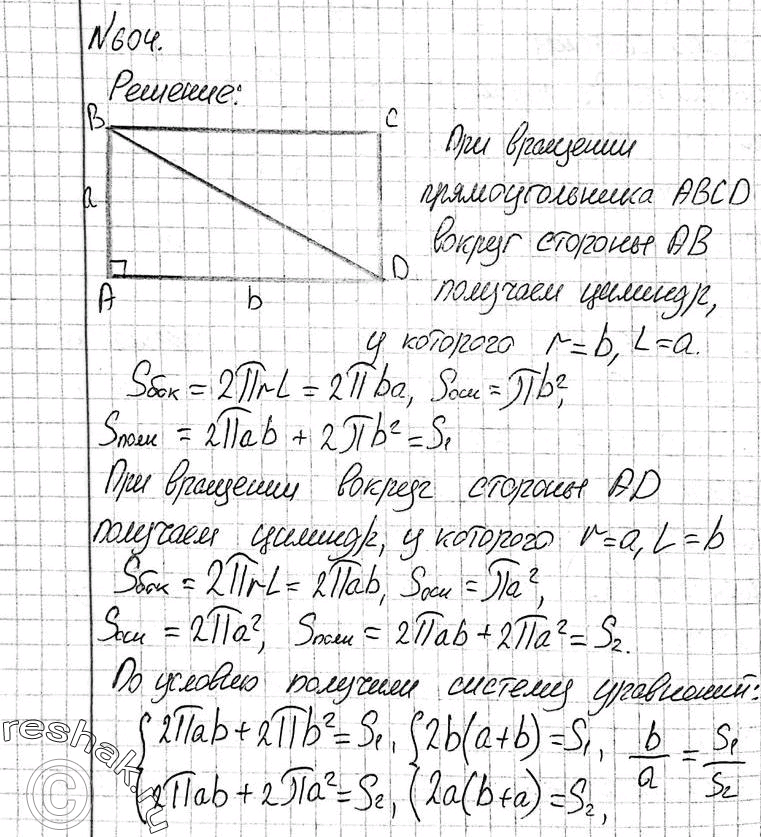 №604.
Решение:
B C
a
A b D
При вращении
прямоугольника ABCD
вокруг стороны AB
получаем цилиндр,
у которого r=b, L=a.
Sбок = 2πrL = 2πba, Sосн = πb²,
Sполн = 2πab + 2πb² = S₁
При вращении вокруг стороны AD
получаем цилиндр, у которого r=a, L=b
Sбок = 2πrL = 2πab, Sосн = πa²,
Sосн = 2πa², Sполн = 2πab + 2πa² = S₂.
По условию получим систему уравнений:
{2πab + 2πb² = S₁, {2b(a+b) = S₁, b/a = S₁/S₂
{2πab + 2πa² = S₂, {2a(b+a) = S₂,
reshak.ru
©